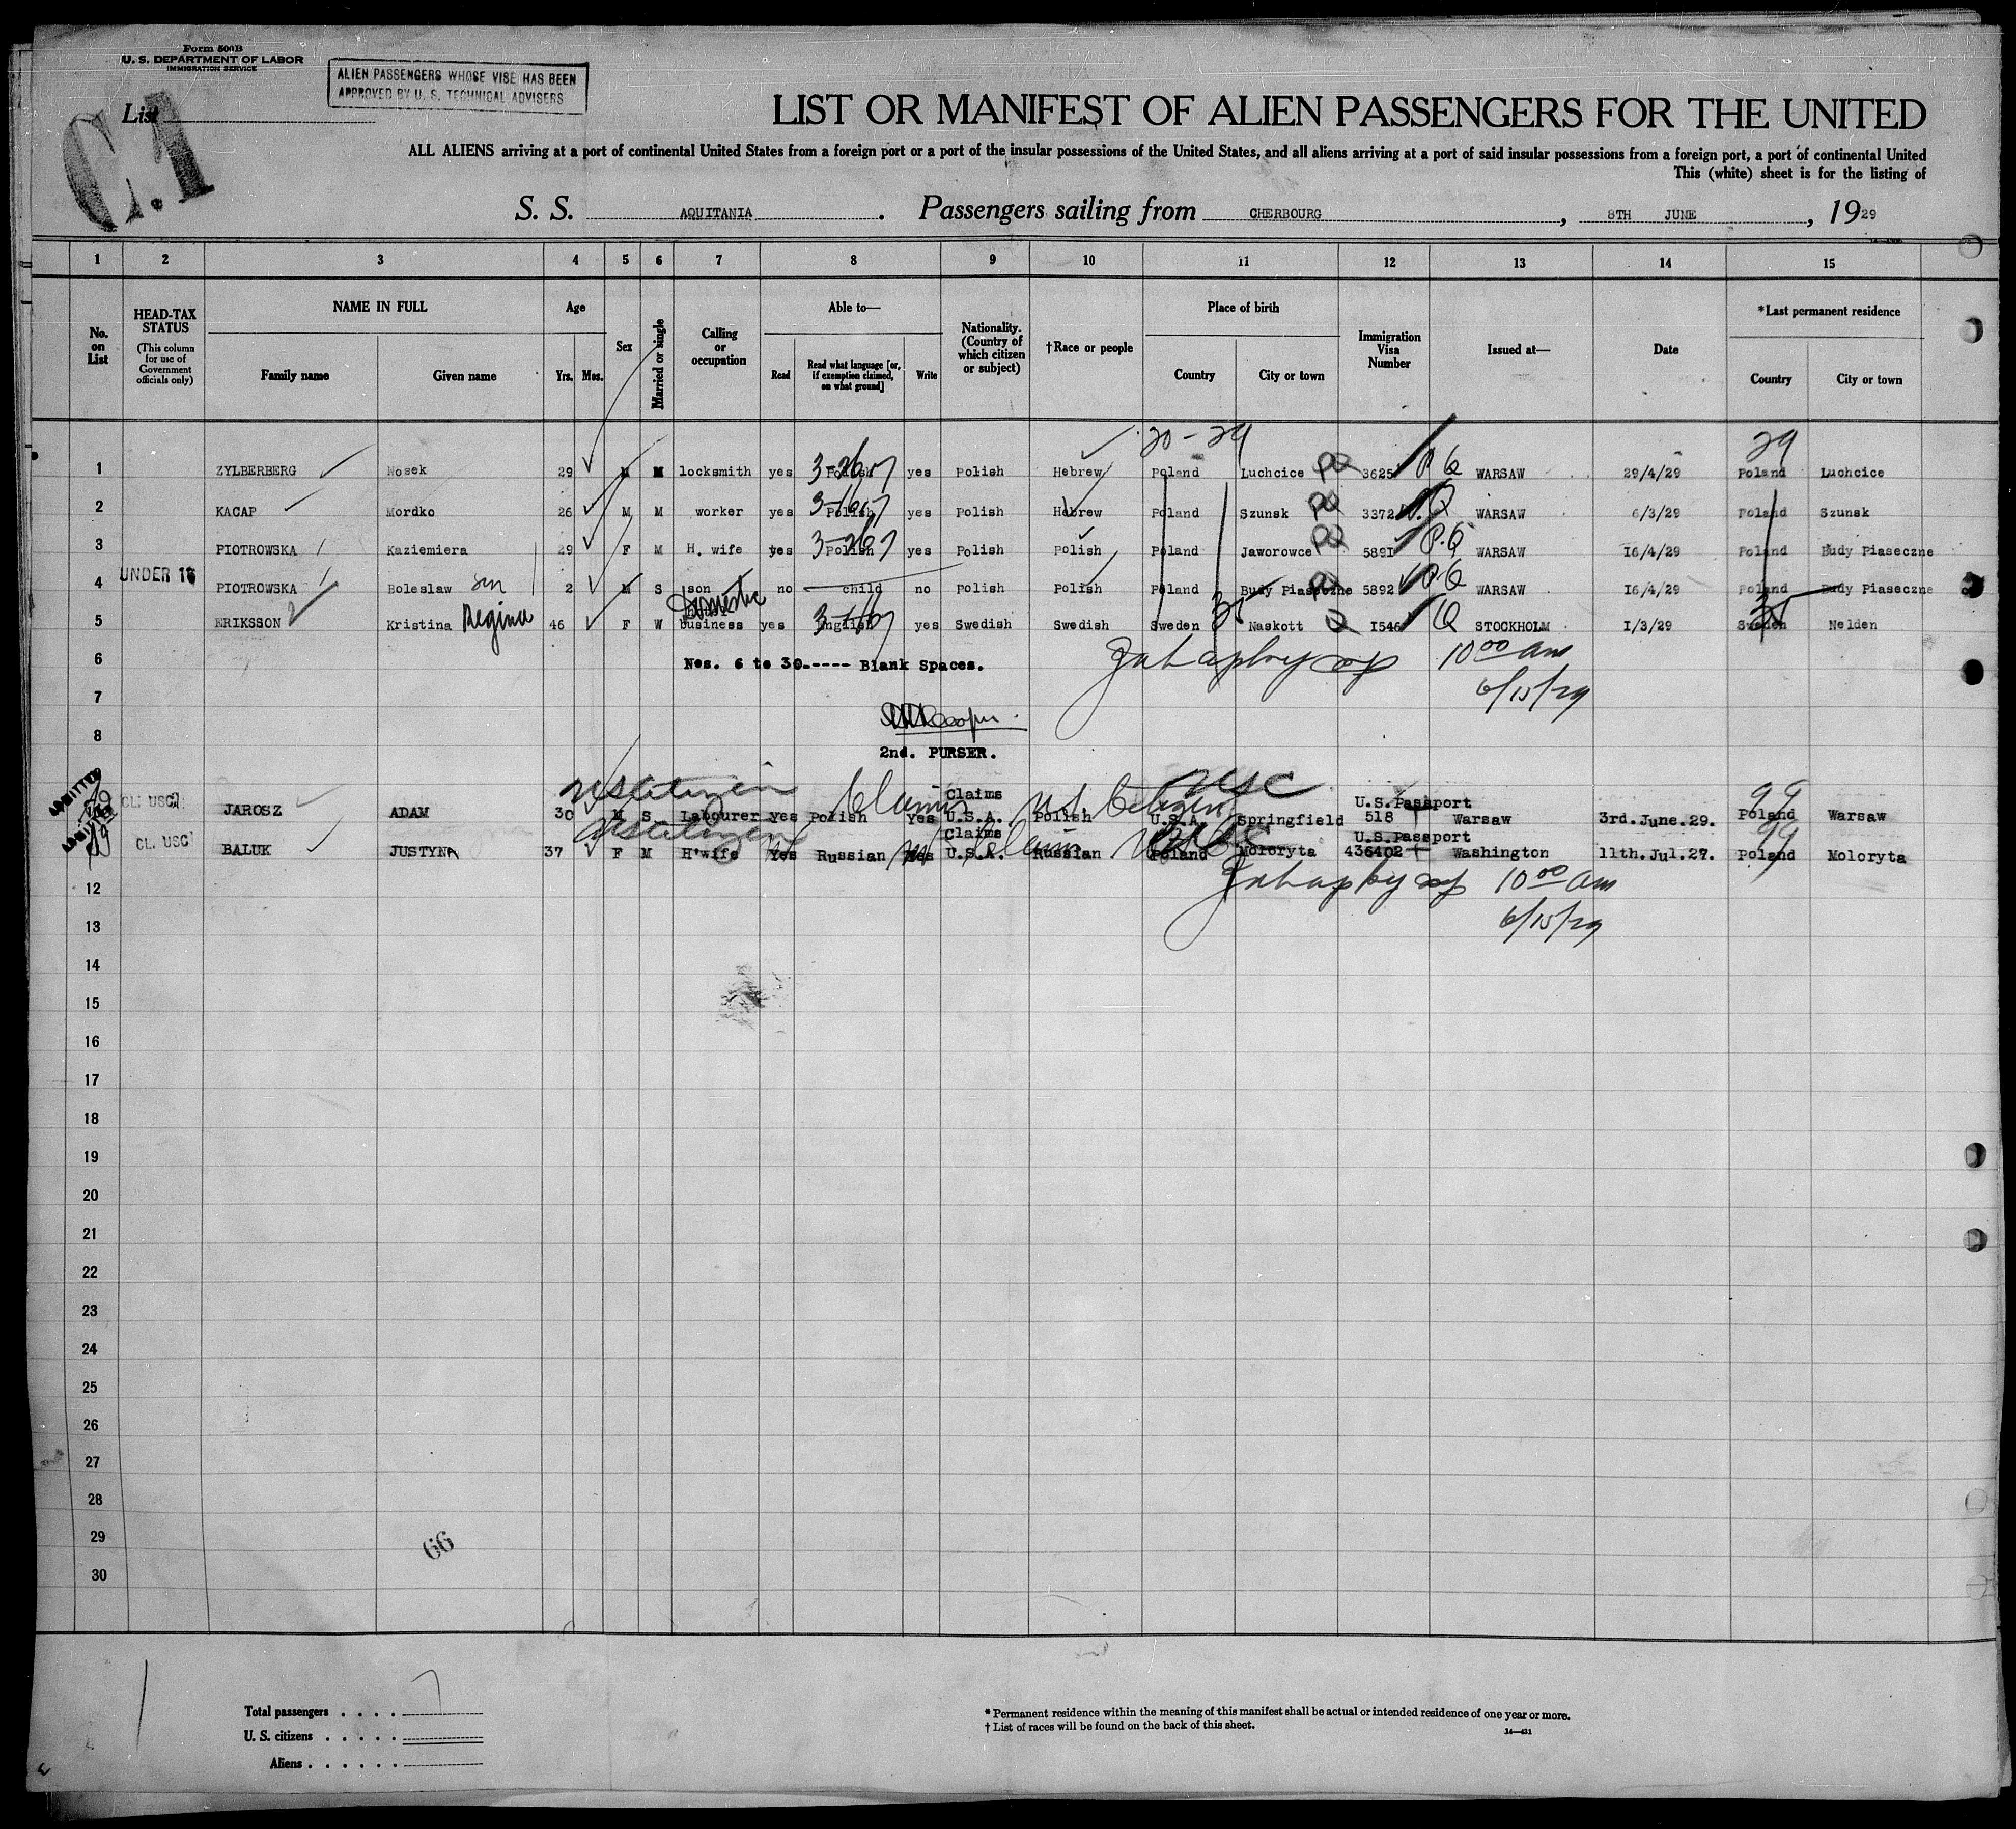 Form 500B
U. S. DEPARTMENT OF LABOR
IMMIGRATION SERVICE
ALIEN PASSENGERS WHOSE VISE HAS BEEN
APPROVED BY U. S. TECHNICAL ADVISERS
List
C.1
LIST OR MANIFEST OF ALIEN PASSENGERS FOR THE UNITED
ALL ALIENS arriving at a port of continental United States from a foreign port or a port of the insular possessions of the United States, and all aliens arriving at a port of said insular possessions from a foreign port, a port of continental United
This (white) sheet is for the listing of
S. S. AQUITANIA. Passengers sailing from CHERBOURG, 8TH JUNE, 1929
1 2 3 4 5 6 7 8 9 10 11 12 13 14 15
No. on List
HEAD-TAX STATUS
(This column for use of Government officials only)
NAME IN FULL
Family name Given name
Age
Yrs. Mos.
Sex
Married or single
Calling or occupation
Able to—
Read Read what language [or, if exemption claimed, on what ground] Write
Nationality. (Country of which citizen or subject)
†Race or people
Place of birth
Country City or town
Immigration Visa Number
Issued at—
Date
*Last permanent residence
Country City or town
20 - 29 29
1 ZYLBERBERG Mosek 29 M M locksmith yes Polish yes Polish Hebrew Poland Luchcice PQ 3625 P Q WARSAW 29/4/29 Poland Luchcice
2 KACAP Mordko 26 M M worker yes Polish yes Polish Hebrew Poland Szunsk PQ 3372 P.Q WARSAW 6/3/29 Poland Szunsk
3 PIOTROWSKA Kaziemiera 29 F M H. wife yes Polish yes Polish Polish Poland Jaworowce PQ 5891 P.Q WARSAW 16/4/29 Poland Budy Piaseczne
UNDER 16
4 PIOTROWSKA Boleslaw son 2 M S son no child no Polish Polish Poland Budy Piaseczne PQ 5892 P.Q WARSAW 16/4/29 Poland Budy Piaseczne
Domestic
5 ERIKSSON Kristina Regina 46 F W business yes English yes Swedish Swedish Sweden Naskott Q 1546 Q STOCKHOLM 1/3/29 Sweden Nelden
6 Nos. 6 to 30.---- Blank Spaces. 10 00 am
7 6/15/29
8 2nd. PURSER.
ADMITTED
CL. USC JAROSZ ADAM 30 M S Labourer yes Polish yes Claims U.S.A. Polish U.S.A. Springfield U.S.Passport 518 Warsaw 3rd.June.29. Poland Warsaw
US citizen Claims U.S. Citizen USC 99
ADMITTED
CL. USC BALUK JUSTYNA 37 F M H'wife Yes Russian Yes Claims U.S.A. Russian Poland Moloryta U.S.Passport 436402 Washington 11th.Jul.27. Poland Moloryta
US citizen Claims 99
12 10 00 am
13 6/15/29
14
15
16
17
18
19
20
21
22
23
24
25
26
27
28
29
66
30
Total passengers . . . . 7
U. S. citizens . . . . .
Aliens . . . . . .
* Permanent residence within the meaning of this manifest shall be actual or intended residence of one year or more.
† List of races will be found on the back of this sheet.
14—431